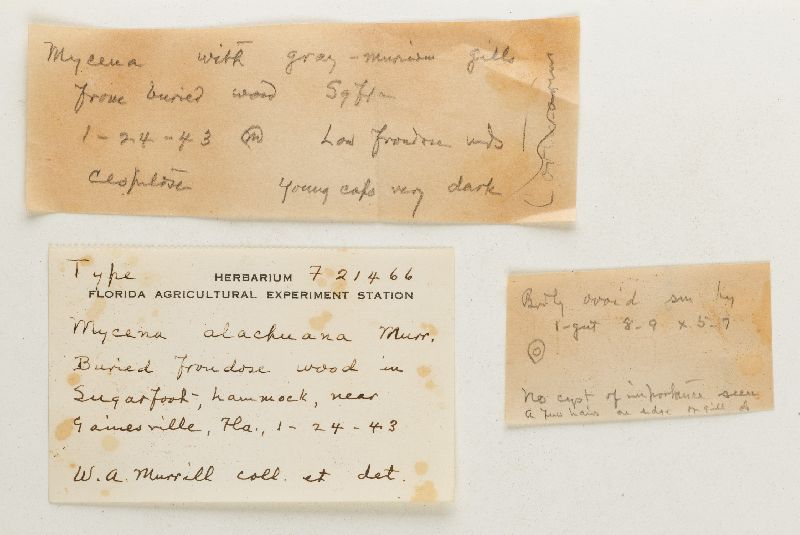 Mycena with gray-murinus gills
from buried wood Sgft
1-24-43 Low frondose wds
Cespitose Young caps very dark
Type HERBARIUM F 21466
FLORIDA AGRICULTURAL EXPERIMENT STATION
Mycena alachuana Murr.
Buried frondose wood in
Sugarfoot, hammock, near
Gainesville, Fla., 1-24-43
W. A. Murrill coll. et det.
ovoid sm hy
1-gut 8-9 x 5-7
No cyst of importance seen
A few hairs on edge of gill